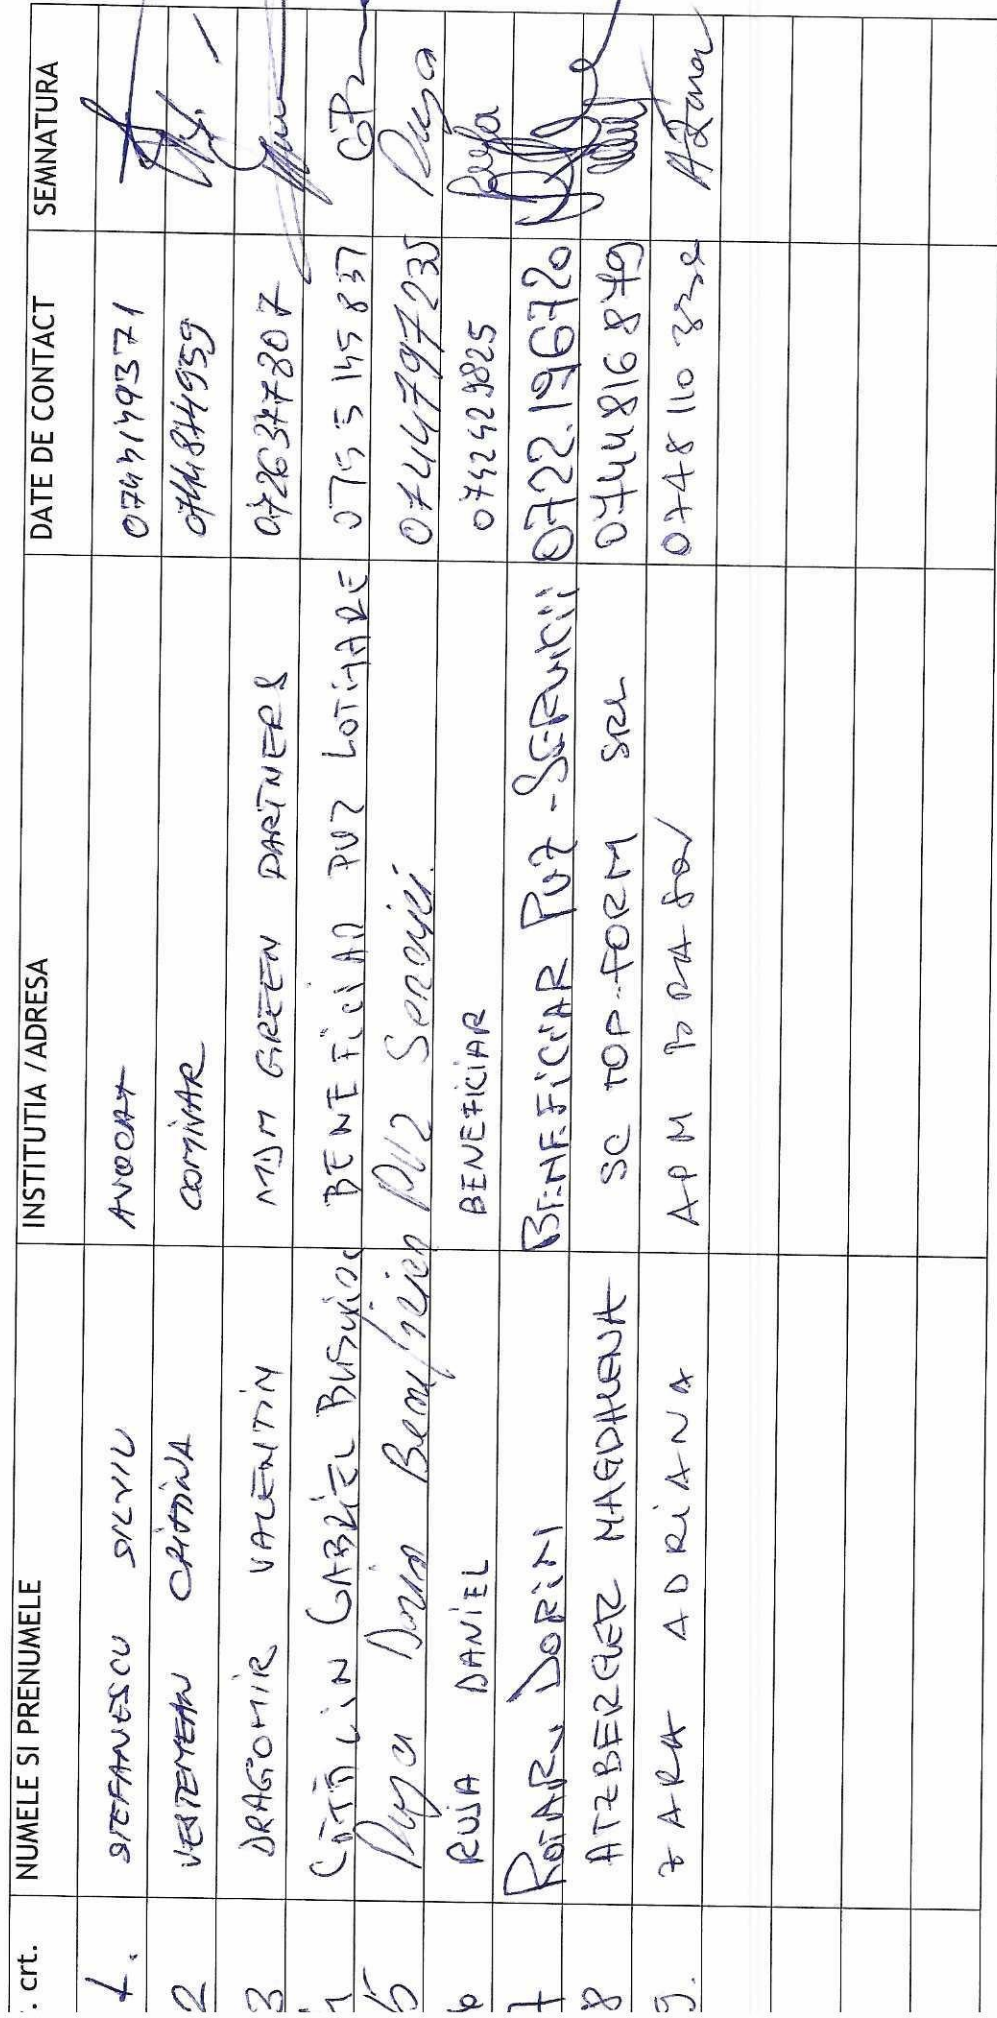 . crt. NUMELE SI PRENUMELE INSTITUTIA /ADRESA DATE DE CONTACT SEMNATURA
1. STEFANESCU SILVIU AVOCAT 0744149371
2 VESTEMEAN CRISTINA COMIVAR
3 DRAGOMIR VALENTIN MJM GREEN PARTNERS 0726377807
CĂTĂLIN GABRIEL BENEFICIAR PUZ LOTIZARE 0755145837
5 Ruja Dorin Beneficiar PUZ Servicii 0744797235 Ruja
6 RUJA DANIEL BENEFICIAR 0742429825 Ruja
7 ROTARU DORIN BENEFICIAR PUZ - SERVICII 0722.196720
8 ATZBERGER MAGDALENA SC TOP-FORM SRL 0744816879
9. ZARA ADRIANA APM BRASOV 0748110 AZara